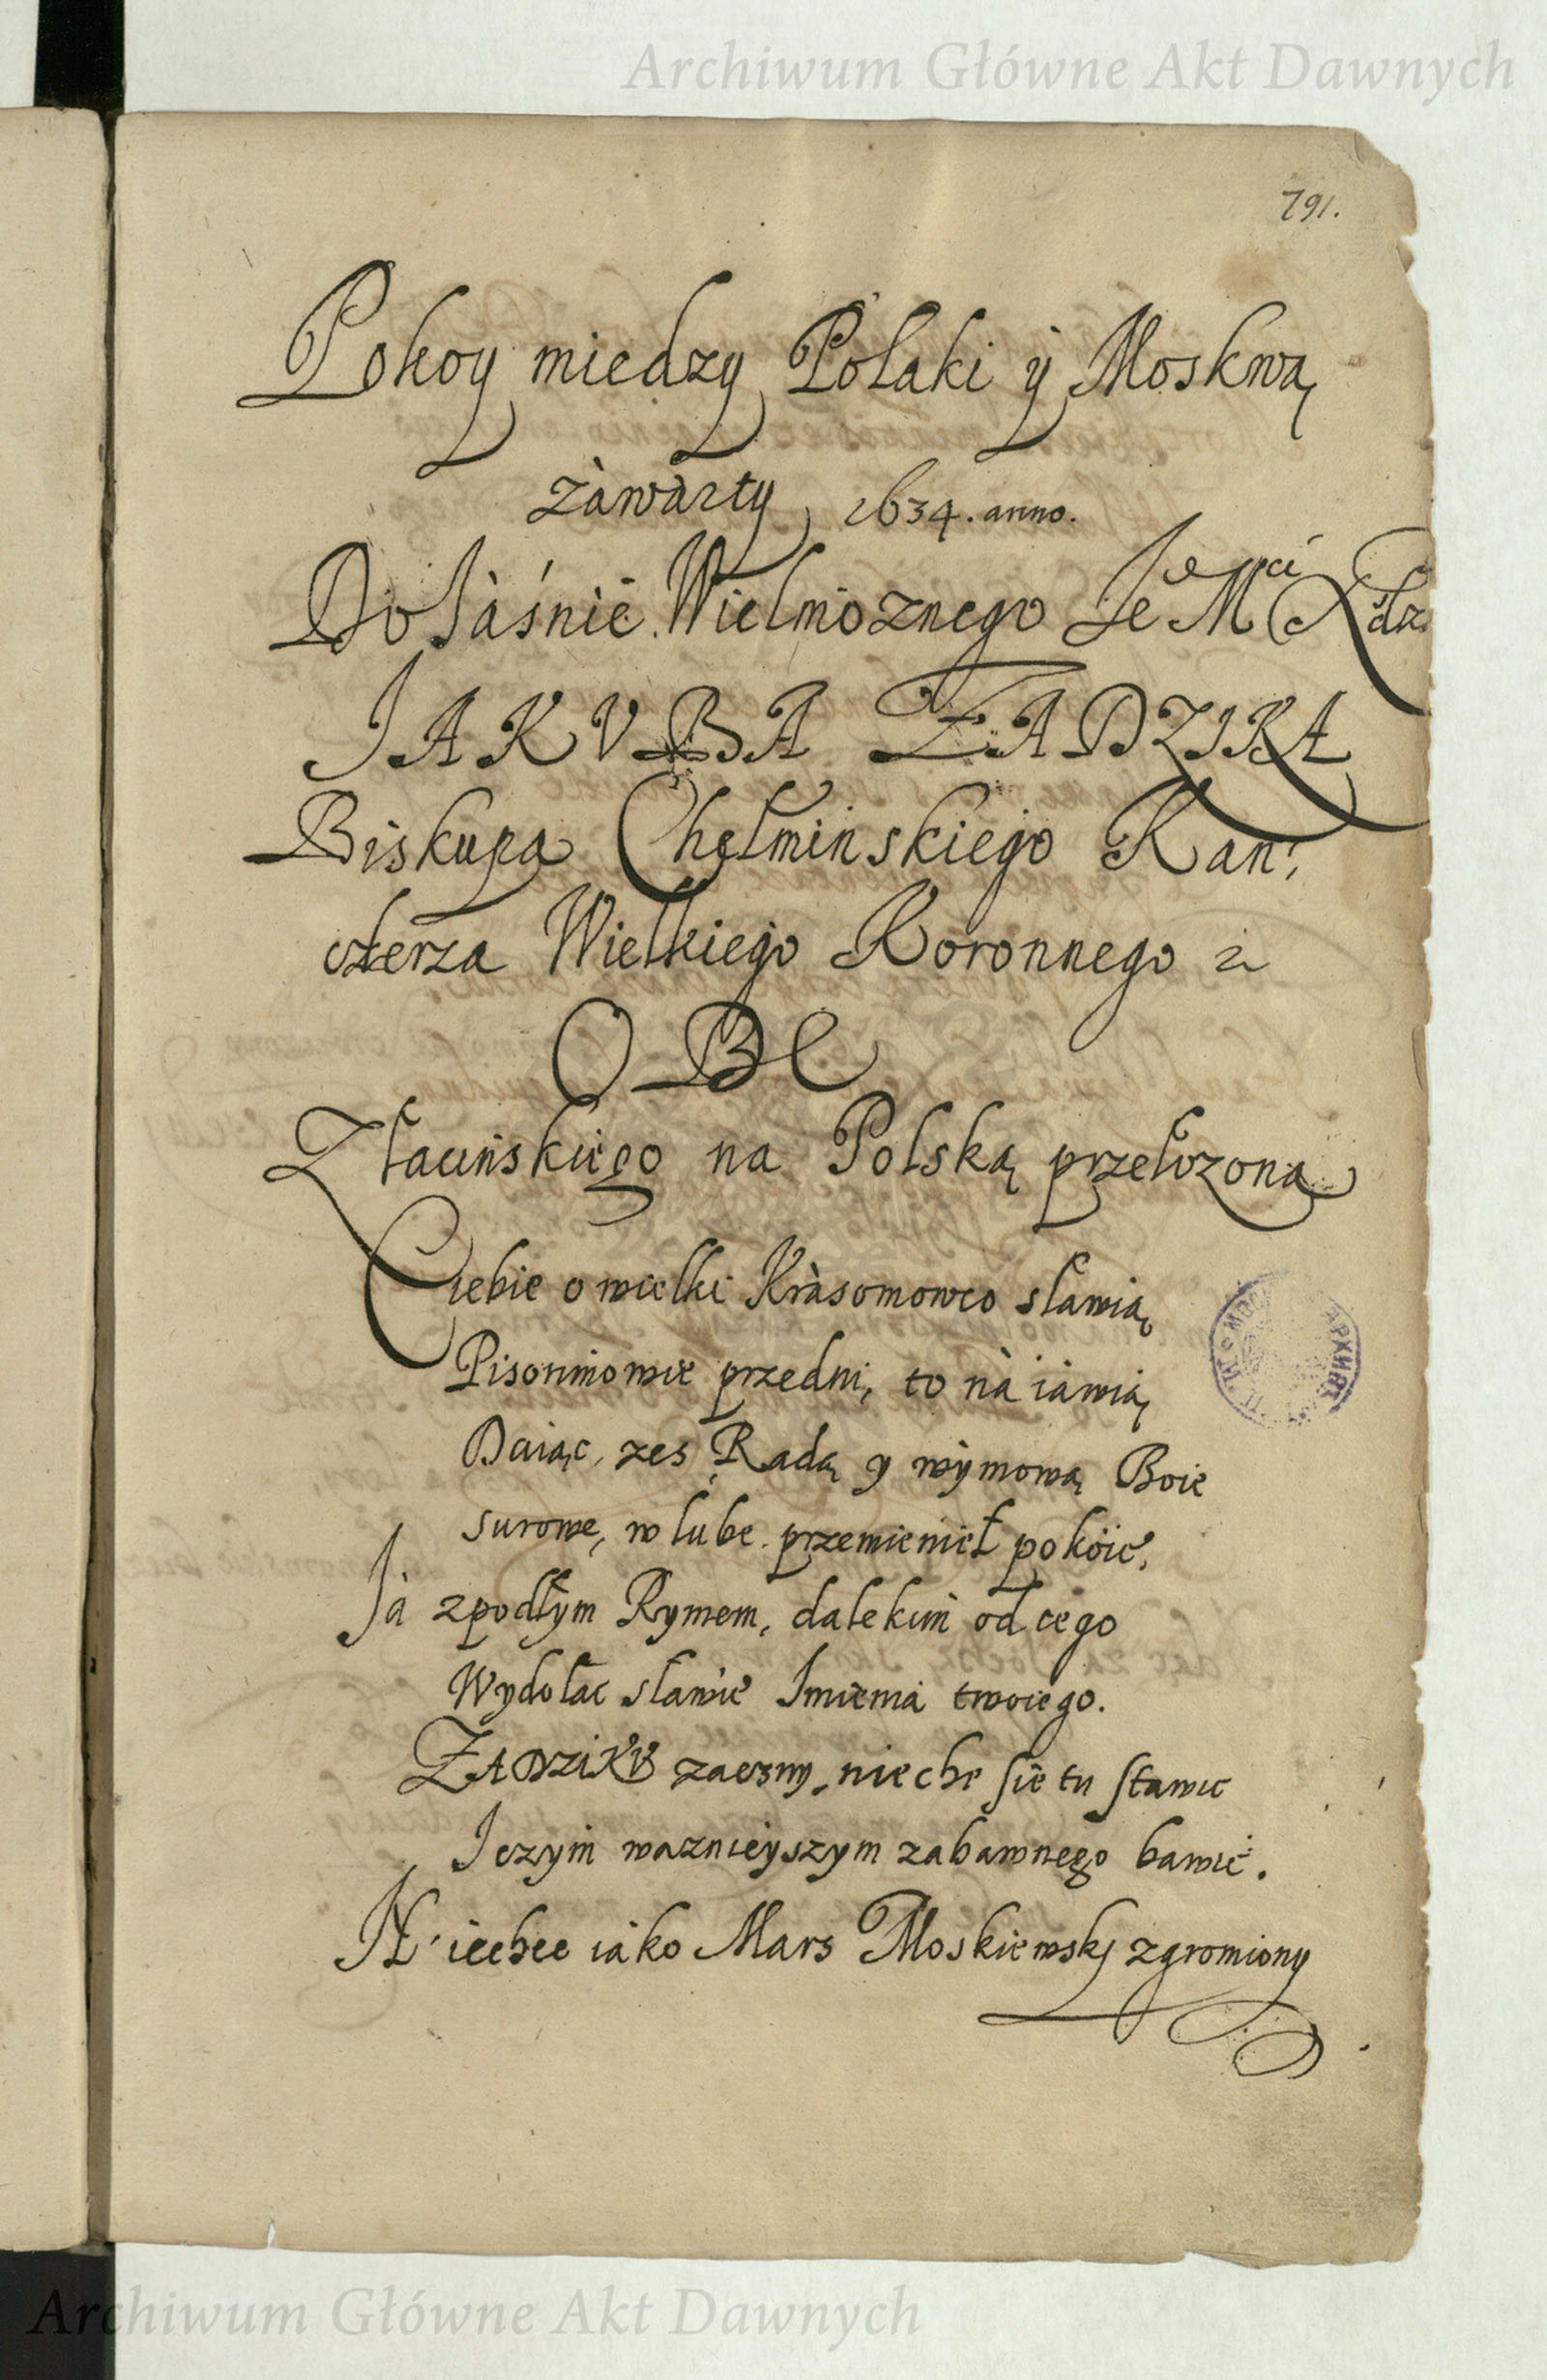 Archiwum Główne Akt Dawnych
791.
Pokoy miedzy Polaki ÿ Moskwą
zàwàrty, 1634. anno.
Do Jàśnie Wielmoznego Je Mci
JAKVBA ZADZIKA
Biskupa Chełminskiego Kan:
clerza Wielkiego Koronnego
OBC
Z łacinskiego na Polską przełozona
Ciebie o wielki Kràsomowco sławią
Pisorimowie przedni, to nà iáwią
Daiąc, zes Radą y wymową Boie
surowe, w lube przemienieł pokoie.
Já zpodłym Rymem, dalekim od tego
Wydołac sławie Imienia twoiego.
ZADZIKV zacny, niechc sie tu stawic
I czym wazniejszym zabawnego bawic.
Niechce iáko Mars Moskiewskj zgromiony
Archiwum Główne Akt Dawnych